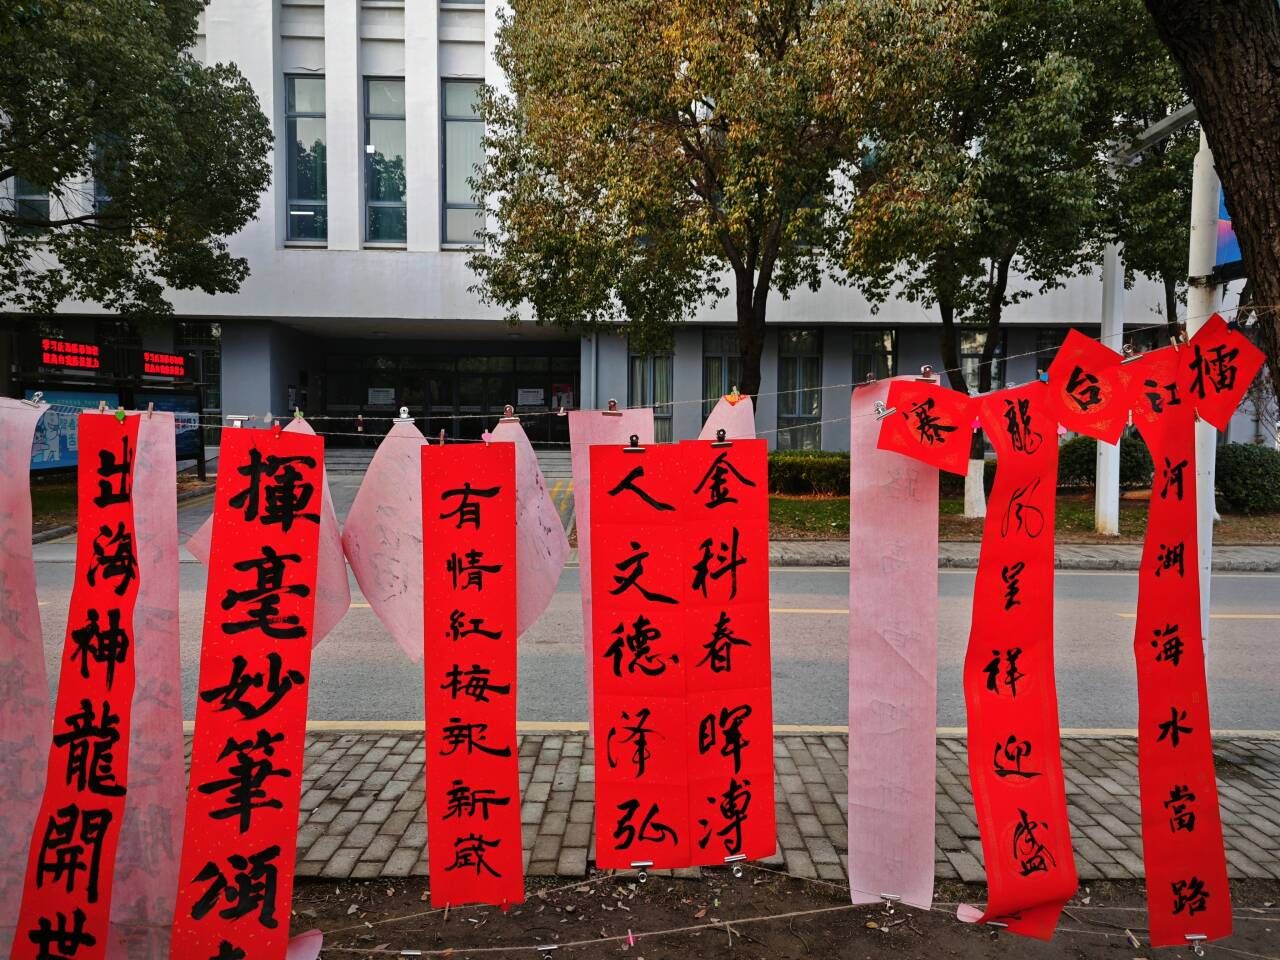 擂台赛
江河湖海水當路
龍凤呈祥迎盛
金科春暉溥
人文德泽弘
有情紅梅報新歲
揮毫妙筆頌
出海神龍開世